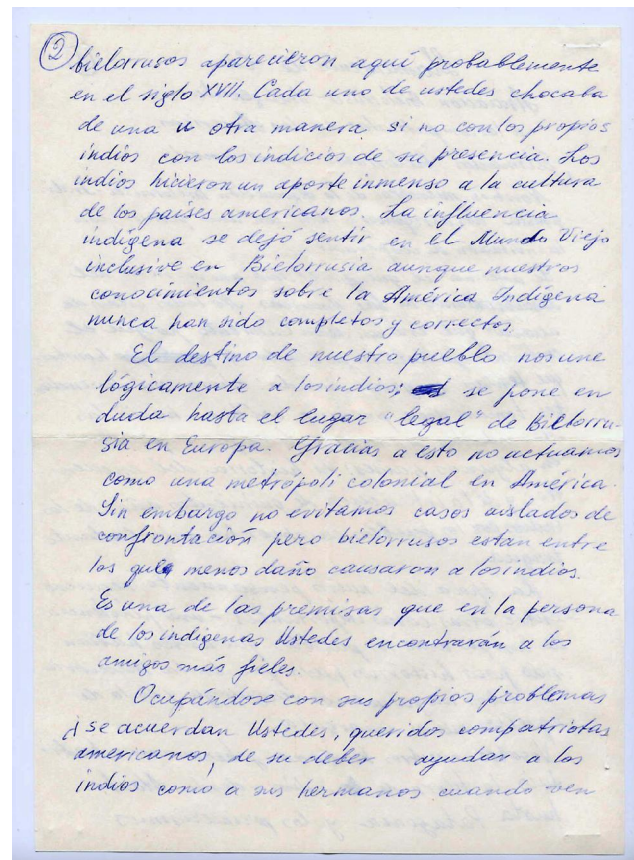 ② bielorrusos aparecieron aquí probablemente
en el siglo XVII. Cada uno de ustedes chocaba
de una u otra manera si no con los propios
indios con los indicios de su presencia. Los
indios hicieron un aporte inmenso a la cultura
de los países americanos. La influencia
indígena se dejó sentir en el Mundo Viejo
inclusive en Bielorrusia aunque nuestros
conocimientos sobre la América Indígena
nunca han sido completos y correctos.
El destino de nuestro pueblo nos une
lógicamente a los indios; se pone en
duda hasta el lugar "legal" de Bielorru-
sia en Europa. Gracias a esto no actuamos
como una metrópoli colonial en América.
Sin embargo no evitamos casos aislados de
confrontación pero bielorrusos están entre
los que menos daño causaron a los indios.
Es una de las premisas que en la persona
de los indígenas Ustedes encontrarán a los
amigos más fieles.
Ocupándose con sus propios problemas
¿se acuerdan Ustedes, queridos compatriotas
americanos, de su deber ayudar a los
indios como a sus hermanos cuando ven